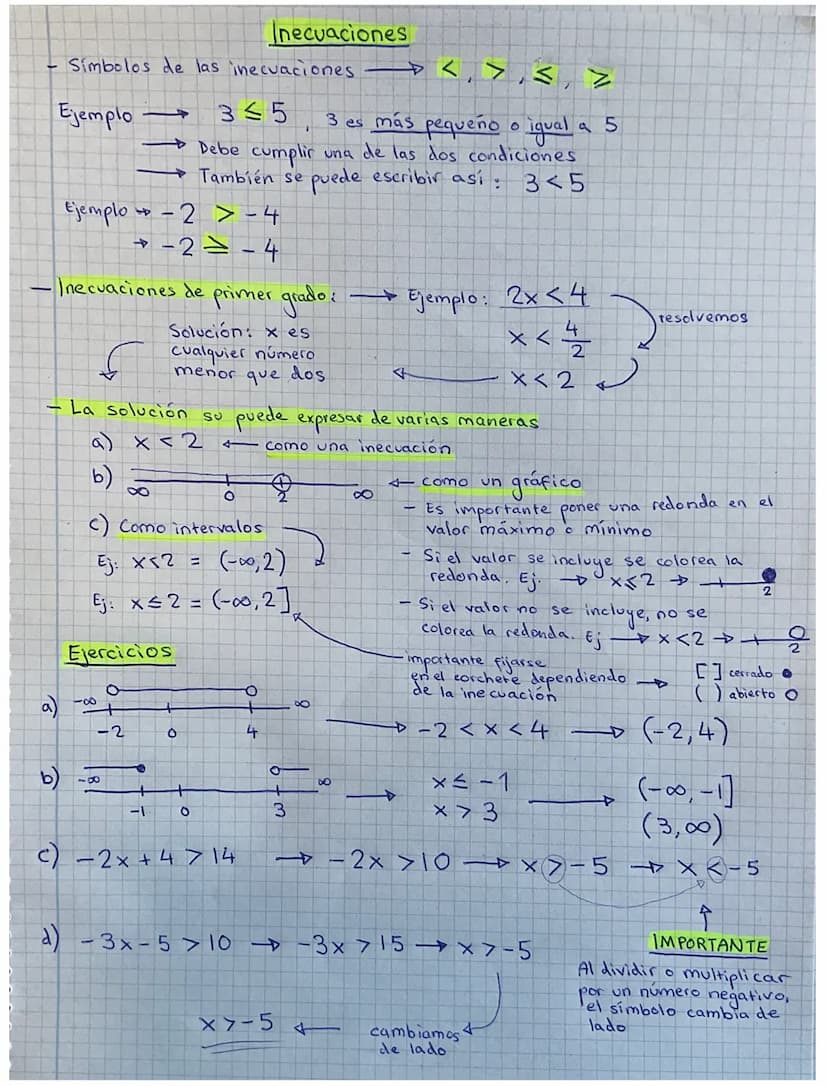 Inecuaciones
- Símbolos de las inecuaciones → <, >, ≤, ≥
Ejemplo → 3 ≤ 5, 3 es más pequeño o igual a 5
→ Debe cumplir una de las dos condiciones
→ También se puede escribir así: 3 < 5
Ejemplo → -2 > -4
→ -2 ≥ -4
- Inecuaciones de primer grado: → Ejemplo: 2x < 4
resolvemos
x < 4/2
x < 2
Solución: x es
cualquier número
menor que dos
- La solución su puede expresar de varias maneras
a) x < 2 ← como una inecuación
b) ∞ 0 2 ∞ ← como un gráfico
- Es importante poner una redonda en el
valor máximo o mínimo
- Si el valor se incluye se colorea la
redonda. Ej. → x ≤ 2 → 2
- Si el valor no se incluye, no se
colorea la redonda. Ej → x < 2 → 2
c) Como intervalos
Ej: x < 2 = (-∞, 2)
Ej: x ≤ 2 = (-∞, 2]
importante fijarse
en el corchete dependiendo
de la inecuación
→ [ ] cerrado ●
( ) abierto ○
Ejercicios
a) -∞ -2 0 4 ∞ → -2 < x < 4 → (-2, 4)
b) -∞ -1 0 3 ∞ → x ≤ -1 → (-∞, -1]
x > 3 (3, ∞)
c) -2x + 4 > 14 → -2x > 10 → x > -5 → x < -5
IMPORTANTE
Al dividir o multiplicar
por un número negativo,
el símbolo cambia de
lado
d) -3x - 5 > 10 → -3x > 15 → x > -5
cambiamos
de lado
x > -5